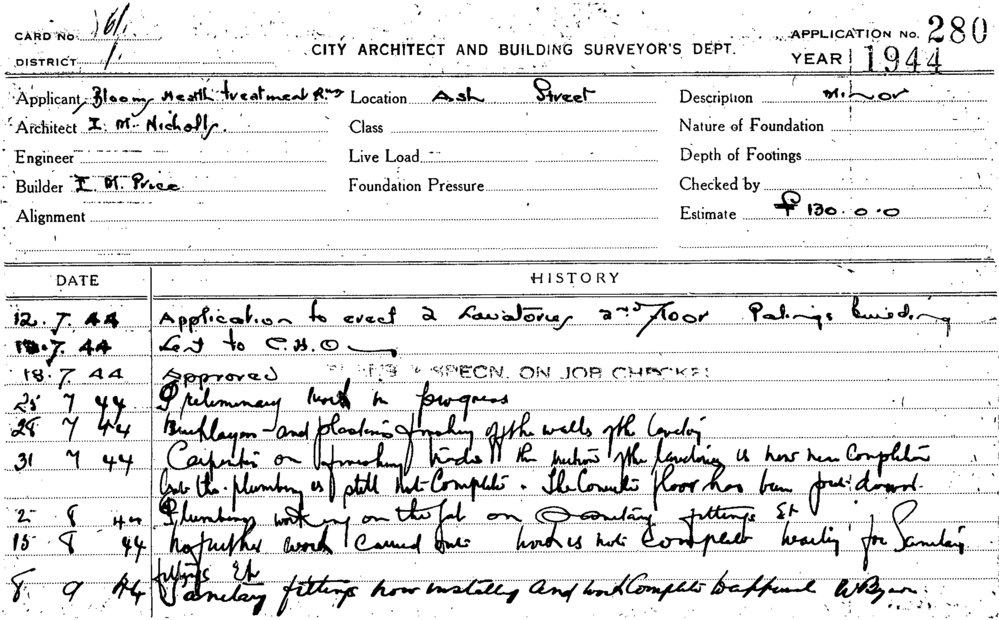 CARD No. 161/1
APPLICATION No. 280
DISTRICT
CITY ARCHITECT AND BUILDING SURVEYOR'S DEPT.
YEAR 1944
Applicant Heath treatment Location Ash Street Description Minor
Architect I. M. Nicholls. Class Nature of Foundation
Engineer Live Load Depth of Footings
Builder I. M. Price Foundation Pressure Checked by
Alignment Estimate £ 130.0.0
DATE HISTORY
12.7.44 Application to erect 2 Lavatories 2nd floor Palings building
18.7.44 Sent to C.H.O
18.7.44 Approved SPECN. ON JOB CHECKED
25 7 44 Preliminary work in progress
28 7 44 Bricklayers and plasterers finishing of the walls of the
31 7 44 Carpenters on finishing the of the is now near Complete
but the plumbing is still not Complete. The Concrete floor has been put down.
2 8 44 Plumbers working on the job on sanitary fittings Etc
15 8 44 No further work Carried out work is not Complete waiting for Sanitary
fittings Etc
8 9 44 Sanitary fittings now installed and work Complete to approval